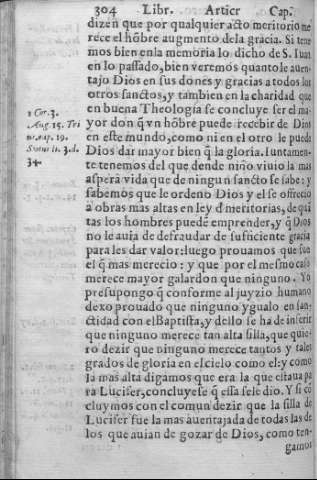 304 Libr. Articr Cap.
dizen que por qualquier acto meritorio me
rece el hõbre augmento dela gracia. Si tene
mos bien enla memoria lo dicho de S. Iuan
en lo passado, bien veremos quanto le auen-
tajo Dios en sus dones y gracias a todos los
otros sanctos, y tambien en la charidad que
en buena Theologia se concluye ser el ma-
yor don q̃ vn hõbre puede recebir de Dios
en este mundo, como ni en el otro le puede
Dios dar mayor bien q̃ la gloria. Iuntamen-
te tenemos del que dende niño viuio la mas
aspera vida que de ningun sancto se sabe: y
sabemos que le ordeno Dios y el se offrecio
a obras mas altas en ley d̃ meritorias, de quã
tas los hombres puedẽ emprender, y q̃ Dios
no le auia de defraudar de sufficiente gracia
para les dar valor: luego prouamos que fue
el q̃ mas merecio: y que por el mesmo caso
merece mayor galardon que ninguno. Yo
presupongo q̃ conforme al juyzio humano
dexo prouado que ninguno ygualo en san-
ctidad con el Baptista, y dello se ha de inferir
que ninguno merece tan alta silla, que quie-
ro dezir que ninguno merece tantos y tales
grados de gloria en el cielo como el: y como
la mas alta digamos que era la que estaua pa
ra Lucifer, concluyese q̃ essa sele dio. Y si cõ
cluymos con el comun dezir que la silla de
Lucifer fue la mas auentajada de todas las de
los que auian de gozar de Dios, como ten-
gamos
1 Cor. 3.
Aug. 15. Tri
19.
Scotus 3. d.
34.